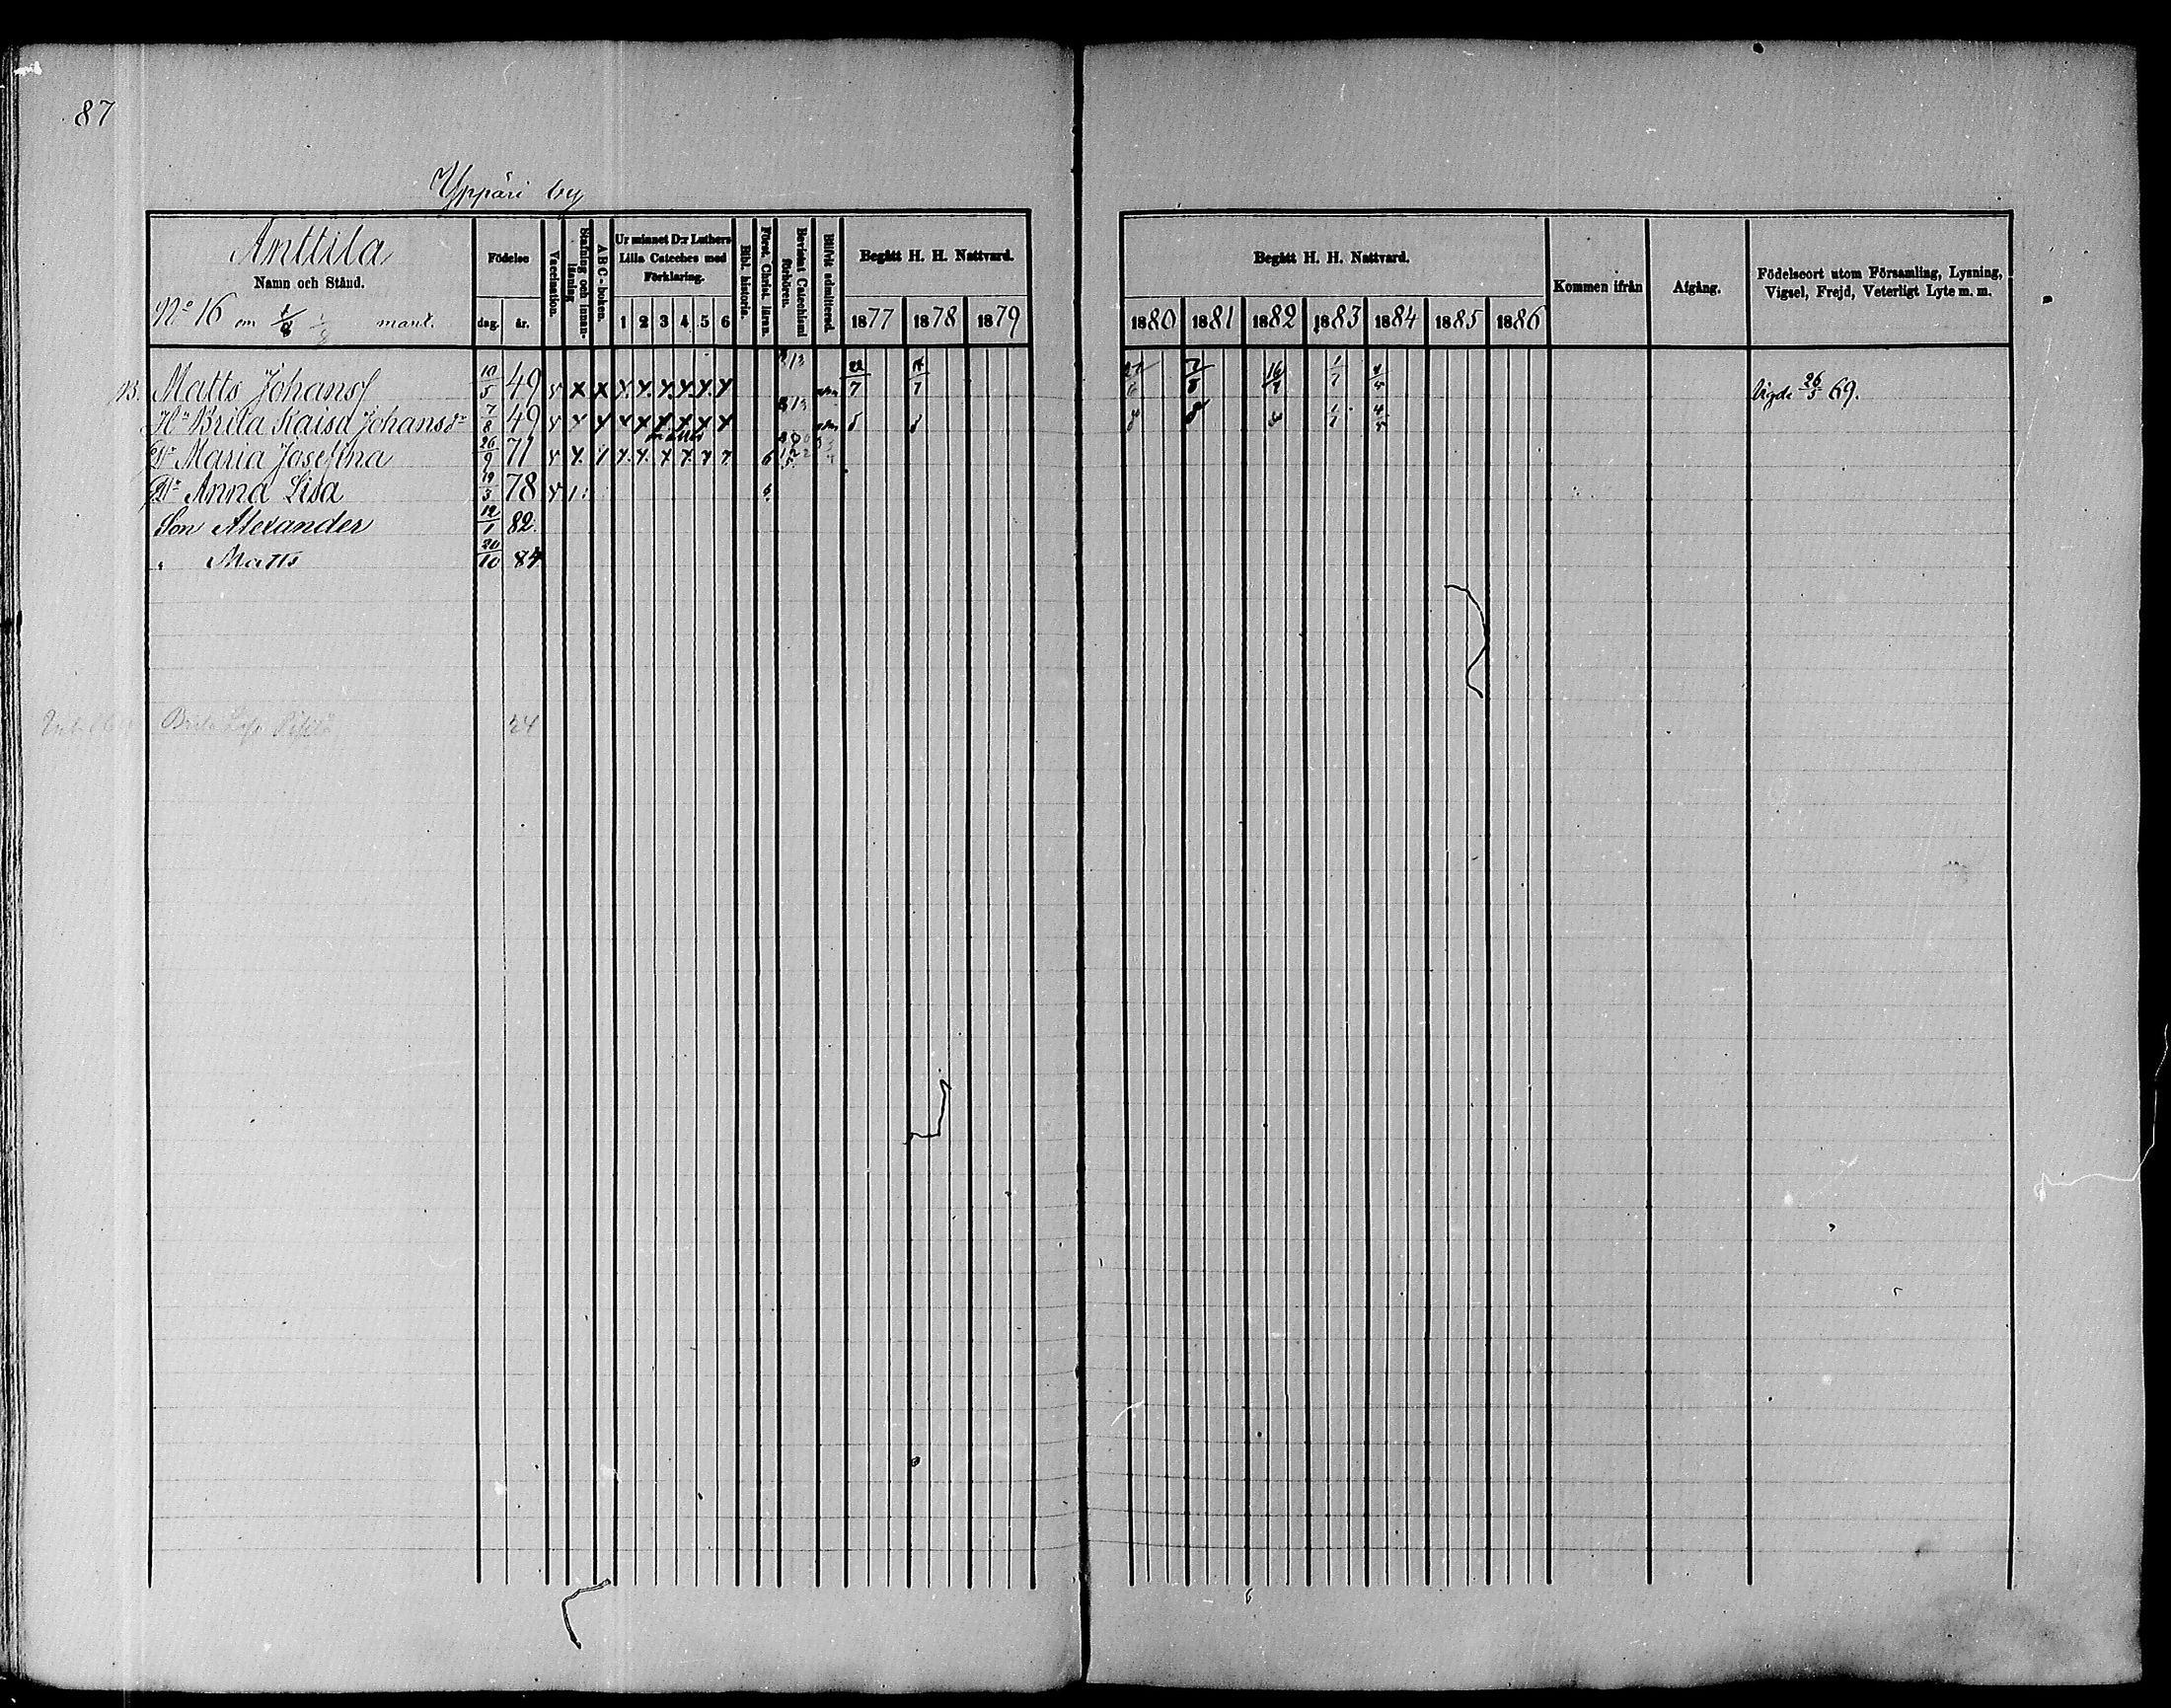 87
Yppäri by
Anttila
Namn och Stånd.
No 16 om 1/8 mant.
Födelse
dag. år.
Vaccination.
Stafning och innanläsning
A B C-boken.
Ur minnet D:r Luthers Lilla Cateches med Förklaring.
1 2 3 4 5 6
Bibl. historia.
Först. Christ. läran.
Bevistat Catechismi förhören.
Blifvit admitterad.
Begått H. H. Nattvard.
1877 1878 1879
Begått H. H. Nattvard.
1880 1881 1882 1883 1884 1885 1886
Kommen ifrån
Afgång.
Födelseort utom Församling, Lysning, Vigsel, Frejd, Veterligt Lyte m. m.
B. Matts Johanss 10/5 49 v x x y. y. y. y. y. y 22/7 7/8 16/7 1/7 Vigde 26/5 69.
Hu Brita Kaisa Johansdr 7/8 49 v y y x x x x x x 1/7 4/5
Dr Maria Josefina 26/9 71 v y. 6
Dr Anna Lisa 19/3 78 v 6.
Son Alexander 12/1 82.
" Matts 20/10 84
Brita 24